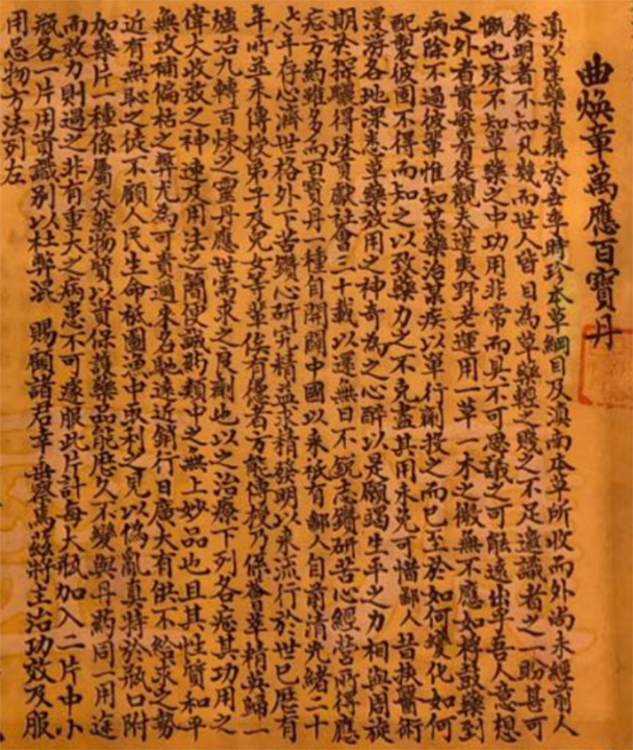 曲煥章萬應百寶丹
滇以産藥著稱於吾華時珍本草綱目及滇南本草所收而外尚未經前人
發明者不知凡幾而世人皆目為草藥輕之賤之不足邀識者之一盼甚可
慨也殊不知草藥之中功用非常而具不可思議之可能遠出乎吾人意想
之外者實繁有徒觀夫邊夷野老運用一草一木之微無不應如桴鼓藥到
病除不過彼輩惟知某藥治某疾以單行劑投之而已至於如何變化如何
配製彼固不得而知之以致藥力之不克盡其用未免可惜鄙人昔挾醫術
漫游各地深悉草藥效用之神奇為之心醉以是願竭生平之力相與周旋
期於探驪得珠貢獻社會三十載以還無日不銳志鑽研苦心經營所得應
症方藥雖多而百寶丹一種自開闢中國以來祇有鄙人自前清光緒二十
八年存心濟世格外下苦鑽心研究精益求精發明以來流行於世已歷有
年所並未傳授弟子及兒女等輩俟有德者方能傳授乃係薈萃精英歸一
爐冶九轉百煉之靈丹應世需求之良劑也以之治療下列各症其功用之
偉大收效之神速及用法之簡便誠葯類中之無上妙品也且其性質和平
無攻補偏枯之弊尤為可貴邇來名馳遠近銷行日廣大有供不給求之勢
近有無恥之徒不顧人民生命於圖漁中取利之見以偽亂真特於瓶口附
加藥片一種係屬天然物質以資保護藥品能歷久不變與丹葯同一用途
而效力則過之非有重大之病患不可遽服此片計每大瓶加入二片中小
瓶各一片用資識別以杜弊混 賜顧諸君幸垂察焉茲將主治功效及服
用忌物方法列左